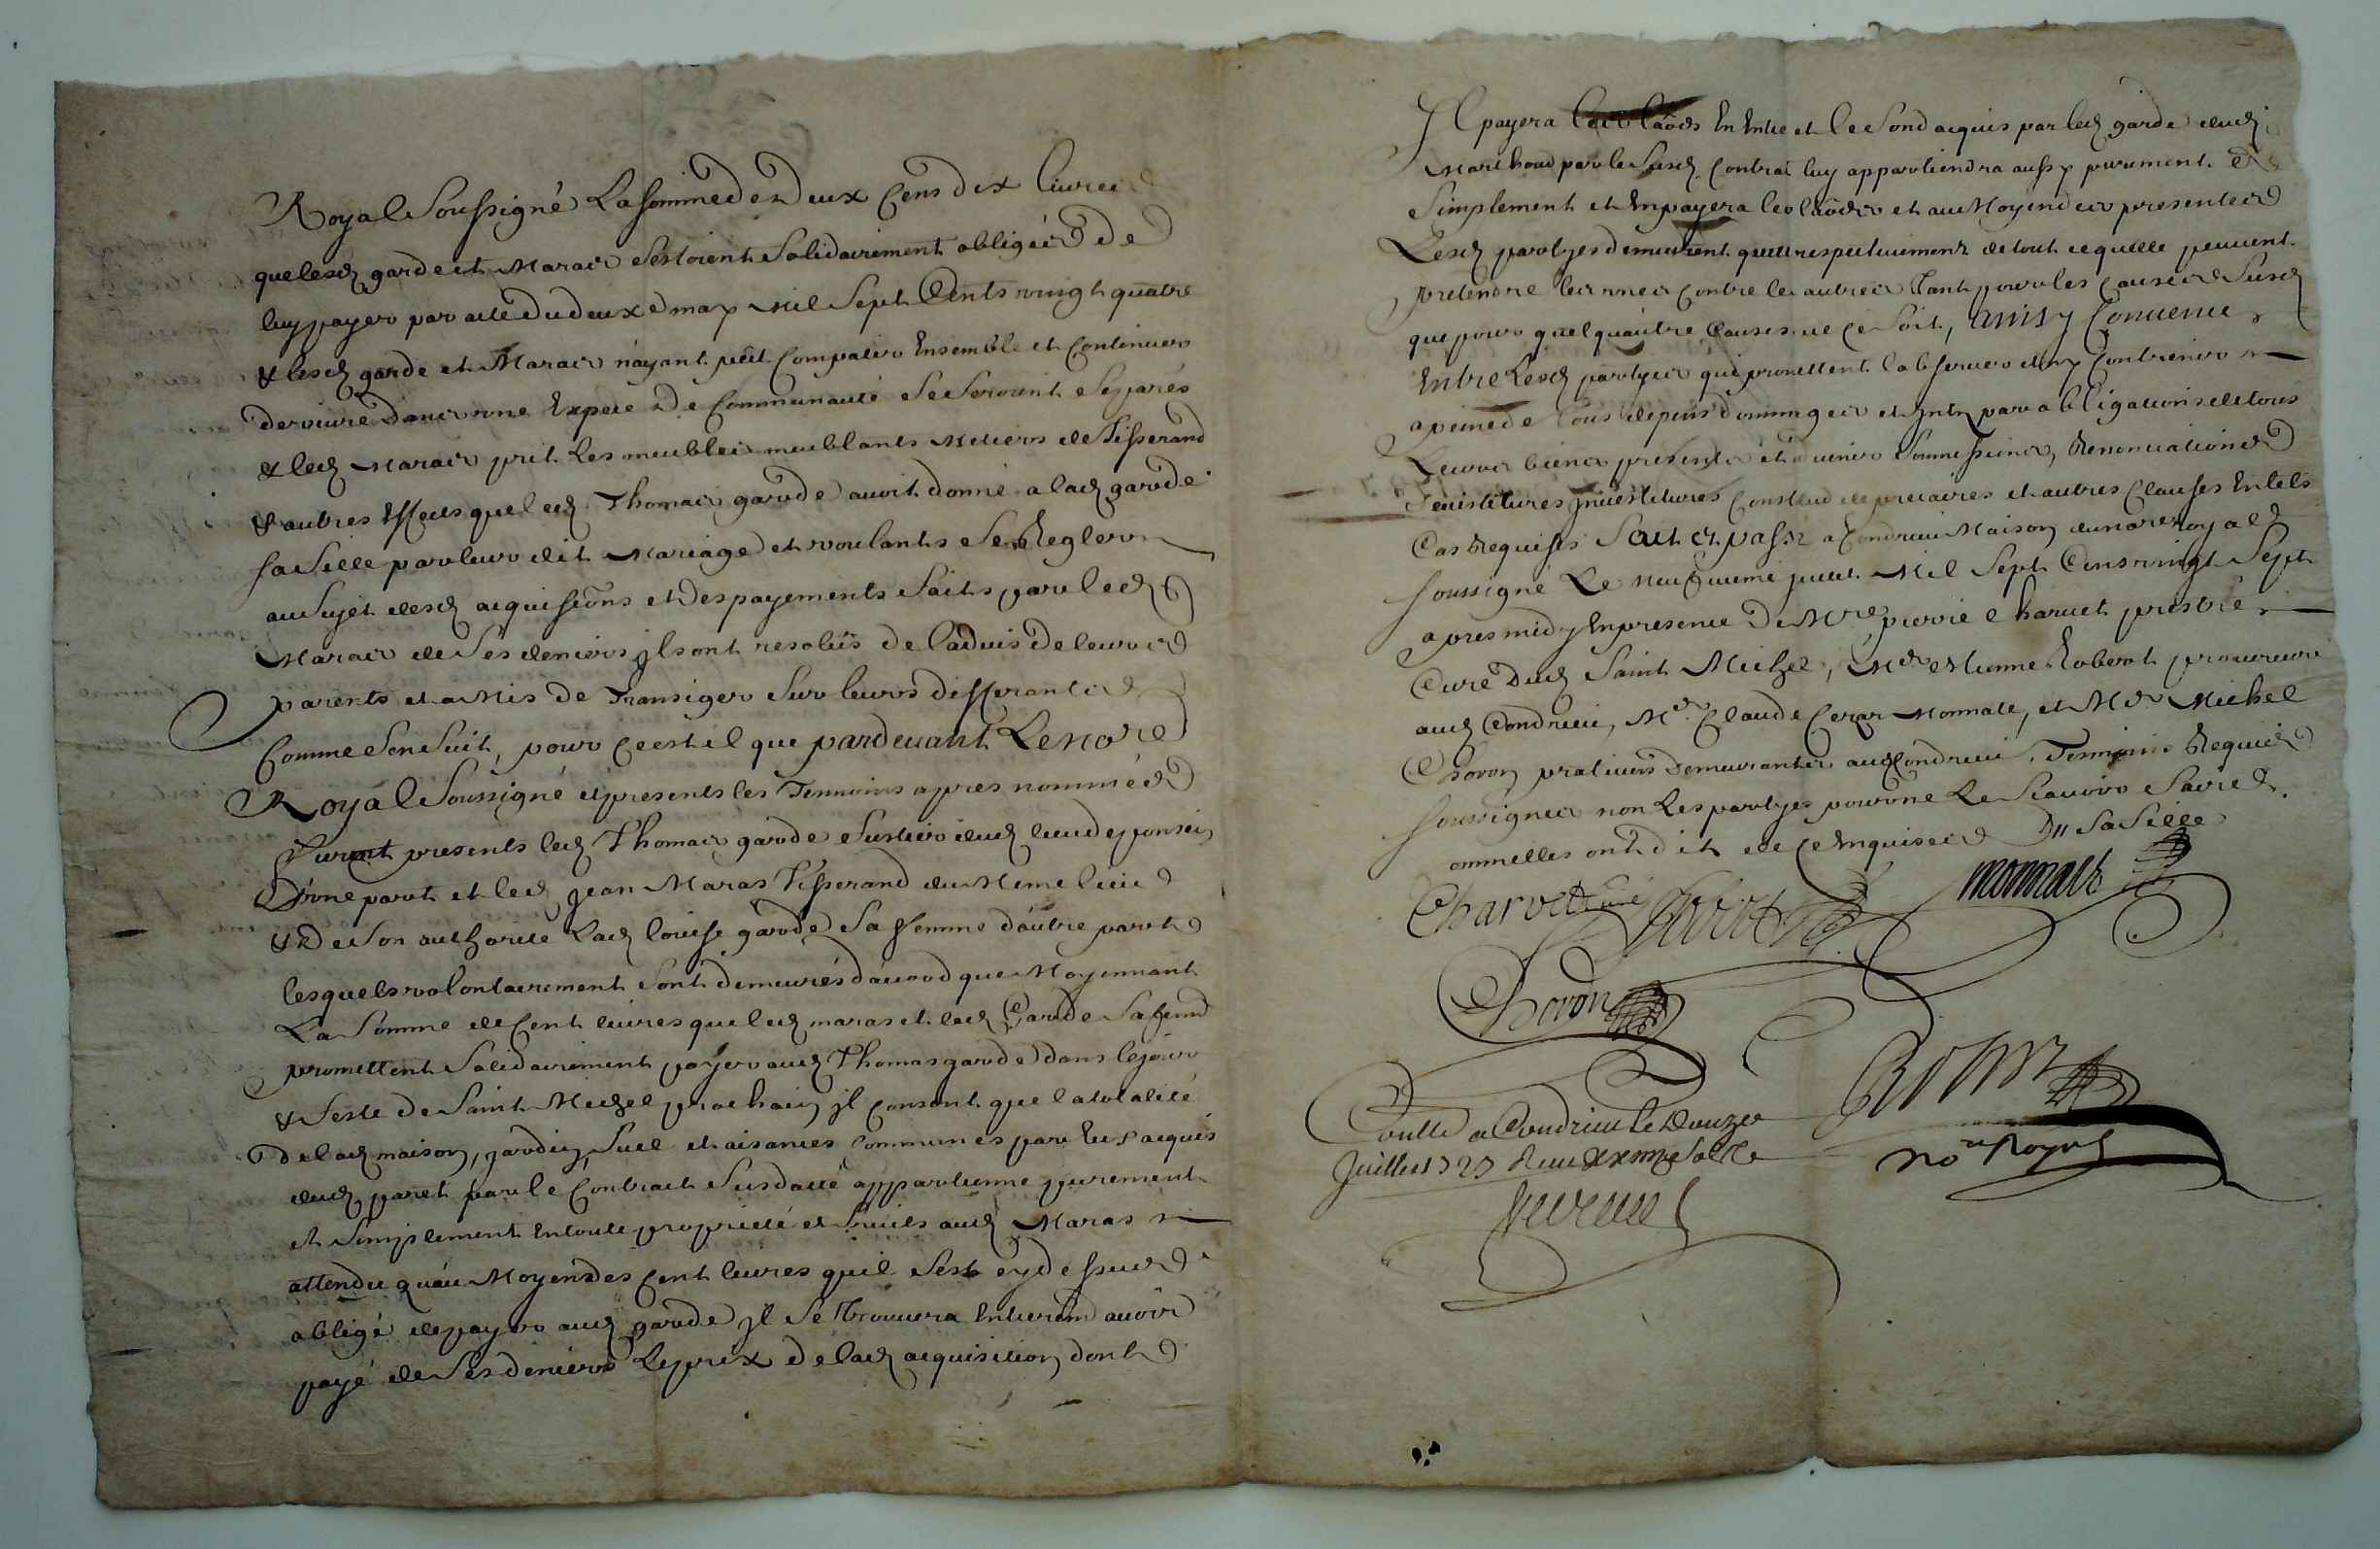 Royal Soussigné La somme de Deux Cens dix livres
que lesd garde et Maras Sestoient Solidairement obligés de
luy payer par acte du deux e may mil Sept Cents vingt quatre
& lesd garde et Maras n'ayant peût Compatir Ensemble et Continuer
de vivre dans une Expece De Communauté Se Seroient Separés
& led Maras prit les meubles meublants Metiers de Tisserand
& autres Effects que led Thomas garde avoit donné a lad garde
sa fille par leur dit Mariage et voulants Se Regler
au Sujet desd acquisitions et des payements faits par led
Maras de Ses deniers jls ont resolus de l'advis de leurs
parents et aMis de Transiger Sur leurs differants
Comme Sen Suit, pour Ce est il que pardevant Le no.re
Royal Soussigné et presents les Temoins apres nommés
furent presents led Thomas garde dud lieu de
D'une part et led Jean Maras Tisserand du Meme lieu
& De Son authorité Lad louise garde Sa femme d'autre part
lesquels volontairement Sont demeurés d'accord que Moyennant
La Somme de Cent livres que led maras et lad Garde Sa fem
promettent Solidairement payer aud Thomas garde dans le jour
& feste de Saint Michel prochain jl Consent que la totalité
de lad maison, jardin, Suel et aisances Communes par Eux acquis
dud par le Contract Susdatté appartienne purement
et Simplement En toute propriété et fruits aud Maras
attendu qu'au Moyen des Cent livres quil Sest cy dessus
obligé de payer aud garde jl Se Trouvera Entierem avoir
payé de Ses deniers Le prix de lad acquisition dont
Jl payera les laods En Entier et le fond acquis par led garde dud
par le Susd Contrat luy appartiendra aussy purement et
Simplement et En payera les laods et au Moyen des presentes
Lesd partyes demeurent quittes respectivement de tout ce quelle peuvent
pretendre les unes Contre les autres Tant pour les Causes Susd
que pour quelqu'autre Causes que ce Soit, ainsy Convenu
Entre Lesd partyes qui promettent l'observer et ny Contrevenir
a peine de Tous depens dommages et Intz par obligations de tous
Leurs biens presents et a venir Soumissions, Renonciations
Investitures Constitud de precaires et autres Clauses En tels
Cas Requises fait et passé a Condrieu Maison du nore royal
soussigné Le neufvieme juillet Mil Sept Cens vingt Sept
apres midy En presence De Mre pierre Charvet prestre
Curé Dud Saint Michel, Mr Etienne Robert procureur
aud Condrieu, Mr Claude Cezar Monnate, et Mr Michel
Choron praticiens Demeurantes aud Condrieu, Temoins Requis
soussignes non Les partyes pour ne Le Scavoir faire
comme elles ont dit de ce Enquises Sa fille
Charvet Curé
Choron
a Condrieu le Douze
Juillet 1727
no.re Royal